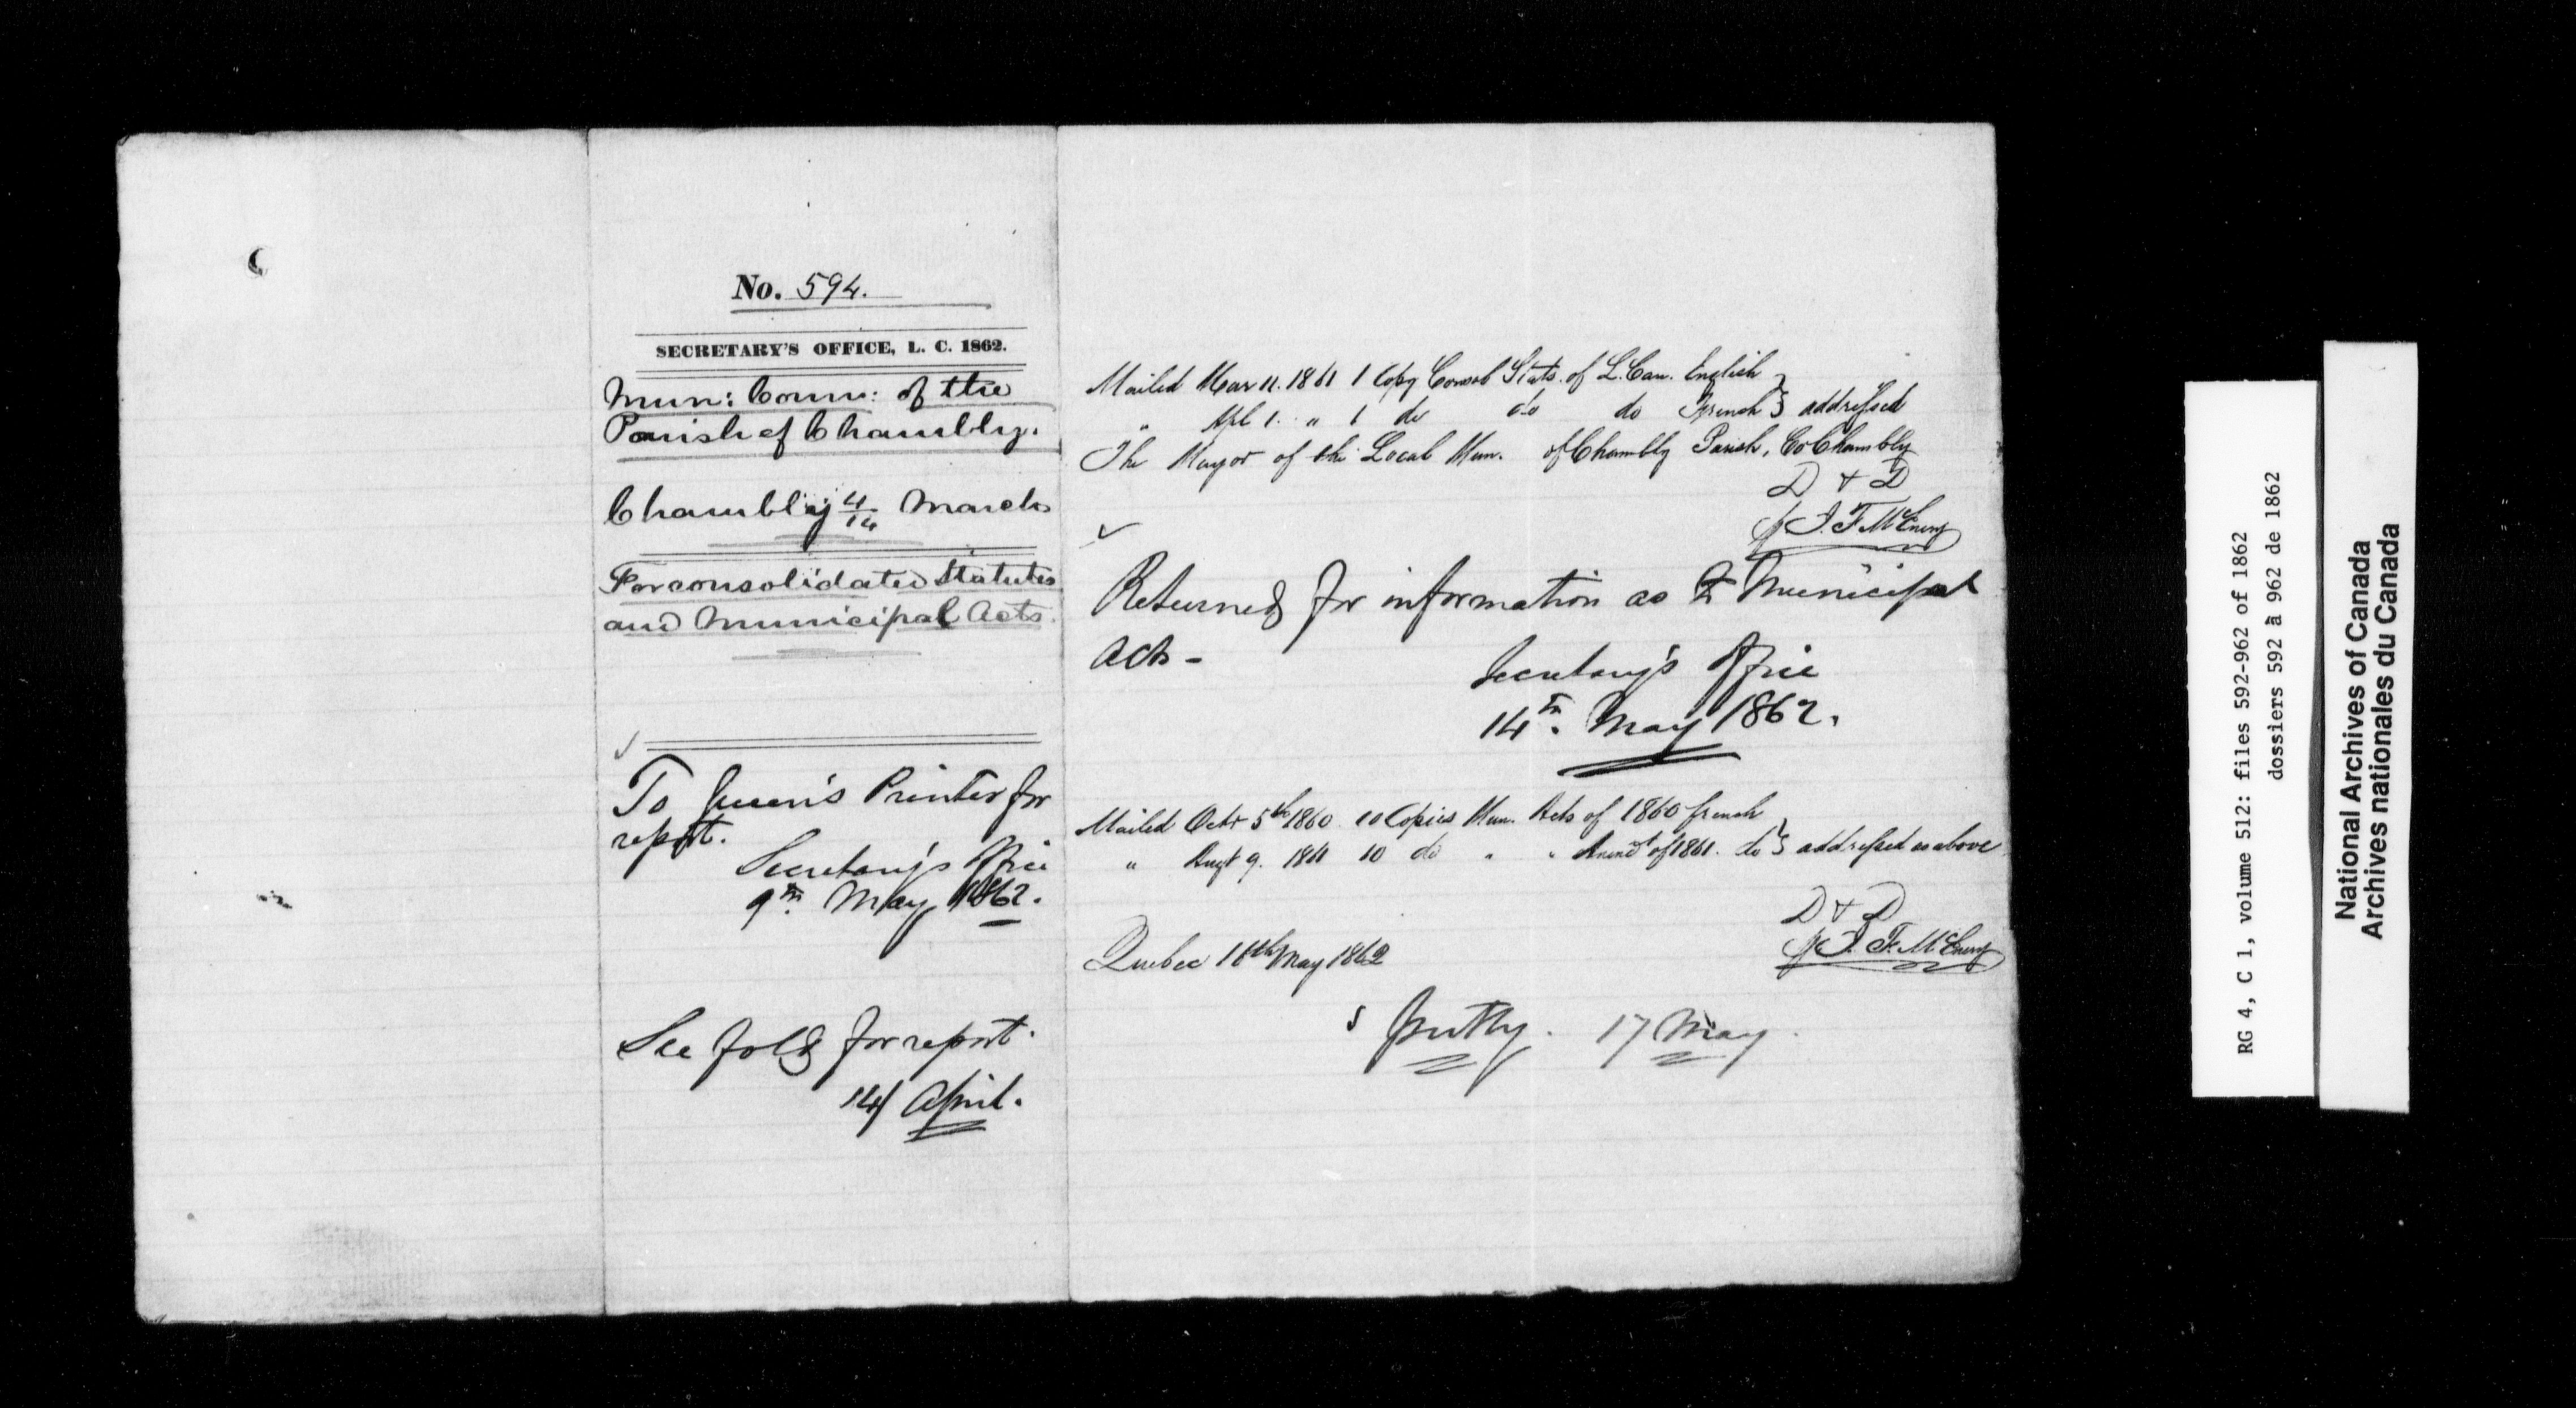 No. 594.
SECRETARY'S OFFICE, L. C. 1862.
Mun: Coun: of the
Parish of Chambly.
Chambly 4/14 March
For consolidated Statutes
and Municipal Acts.
To Queen's Printer for
report.
Secretary's Office
9th May 1862.
See fold for report.
14 April.
Mailed Mar 11. 1861 1 Copy Consol Stats. of L. Can. English }
" Apl 1. " 1 do do do French } addressed
The Mayor of the Local Mun. of Chambly Parish, Co Chambly
D & D
J. F. McEnery
Returned for information as to Municipal
Acts -
Secretary's Office
14th. May 1862.
Mailed Octr 5th 1860 10 Copies Mun. Acts of 1860 french }
" Augt 9. 1861 10 do " " Amendt of 1861. do } addressed as above
D & D
J. F. McEnery
Quebec 16th May 1862
17 May.
RG 4, C 1, volume 512: files 592-962 of 1862
dossiers 592 à 962 de 1862
National Archives of Canada
Archives nationales du Canada